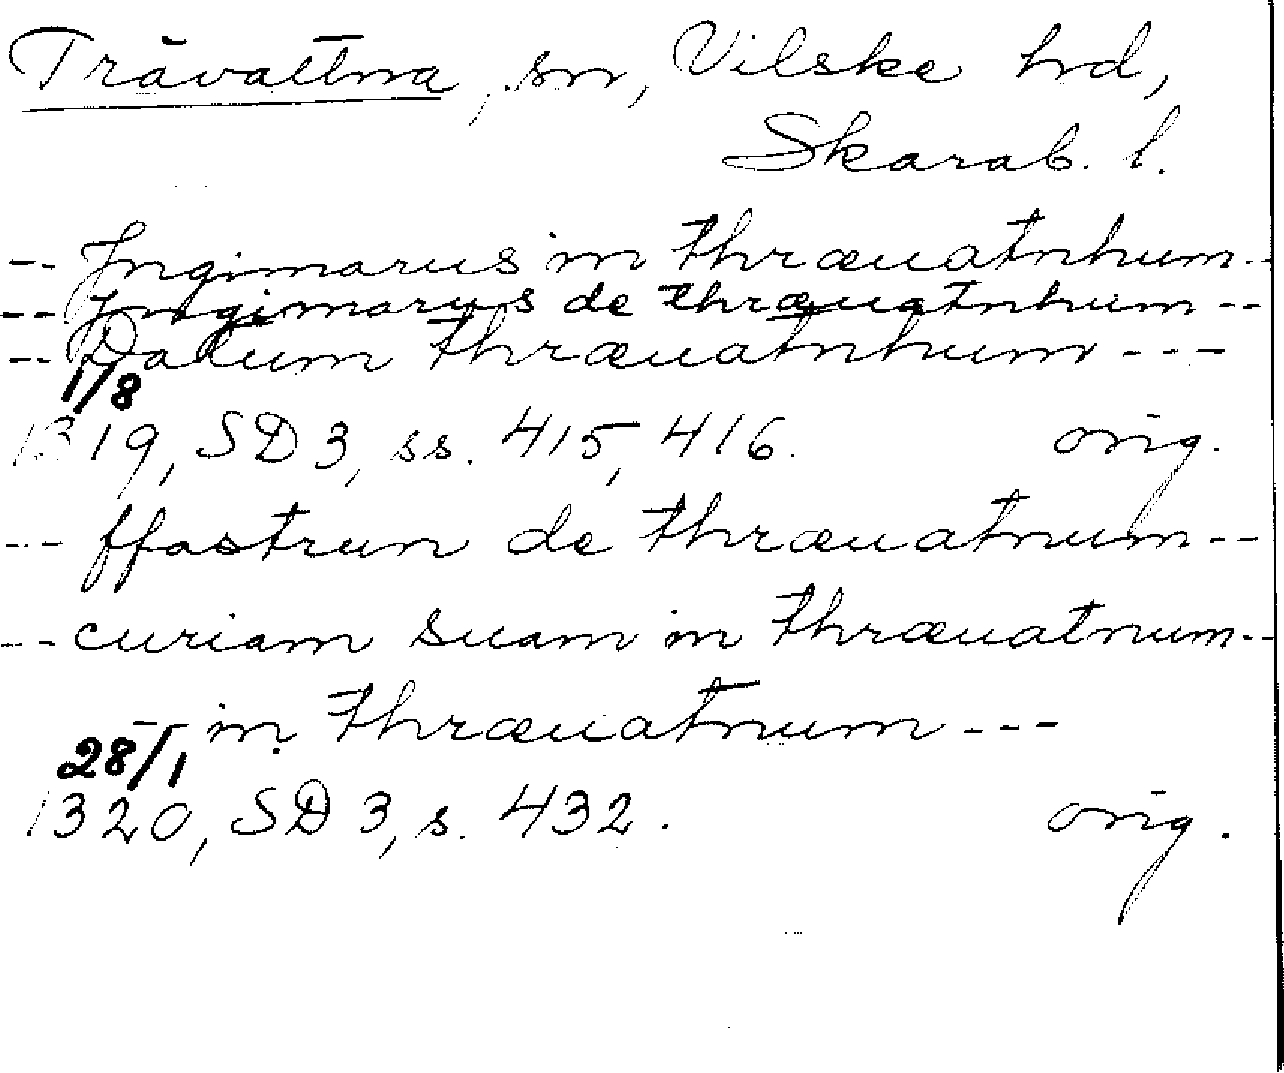 Trävattna, sn, Vilske hd,
Skarab. l.
-- Jngimarus in thræuatnhum--
-- Jngimarus de thræuatnhum--
-- Datum thræuatnhum---
1/8
1319, SD 3, ss. 415, 416. orig.
-- ffastrun de thræuatnum--
-- curiam suam in thræuatnum--
-- in thræuatnum---
28/1
1320, SD 3, s. 432. orig.